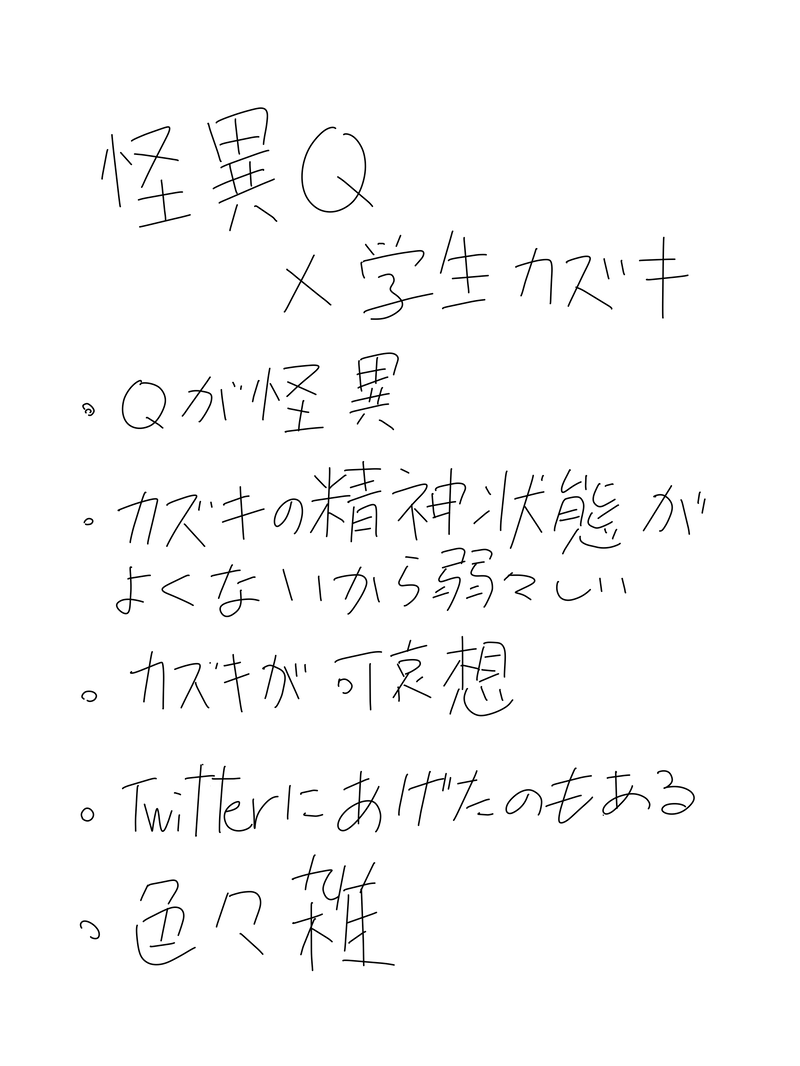 怪異Q
×学生カズキ
。Qが怪異
。カズキの精神状態が
よくないから弱々しい
。カズキが可哀想
。Twitterにあげたのもある
。色々雑